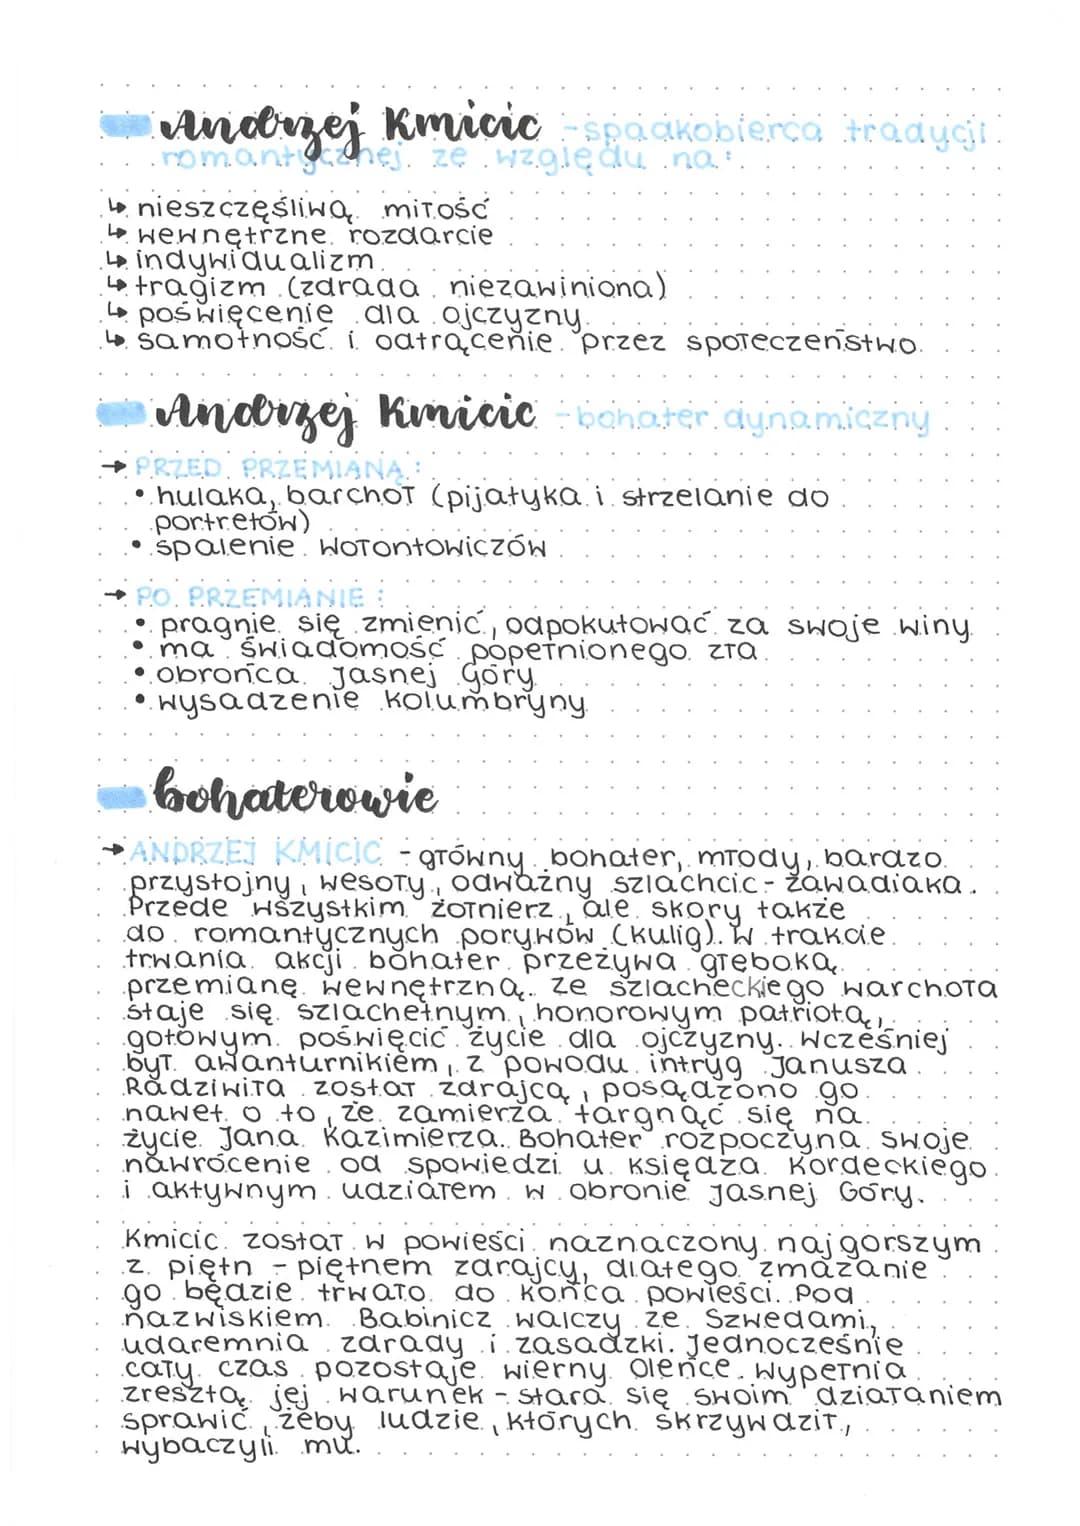 Andrzej Kmicic -spadkobierca tradycji
romantycznej ze względu na:
↳ nieszczęśliwą miłość
↳ wewnętrzne rozdarcie
↳ indywidualizm
↳ tragizm (zdrada niezawiniona)
↳ poświęcenie dla ojczyzny
↳ samotność i odtrącenie przez społeczeństwo.
Andrzej Kmicic -bohater dynamiczny
→ PRZED PRZEMIANĄ:
• hulaka, barchoł (pijatyka i strzelanie do
portretów)
• spalenie Wołontowiczów
→ PO PRZEMIANIE:
• pragnie się zmienić, odpokutować za swoje winy
• ma świadomość popełnionego zła
• obrońca Jasnej Góry
• wysadzenie kolumbryny
bohaterowie
→ ANDRZEJ KMICIC - główny bohater, młody, bardzo
przystojny, wesoły, odważny szlachcic - zawadiaka.
Przede wszystkim żołnierz, ale skory także
do romantycznych porywów (kulig). W trakcie
trwania akcji bohater przeżywa głęboką
przemianę wewnętrzną. Ze szlacheckiego warchoła
staje się szlachetnym, honorowym patriotą,
gotowym poświęcić życie dla ojczyzny. Wcześniej
był awanturnikiem, z powodu intryg Janusza
Radziwiła został zdrajcą, posądzono go
nawet o to, że zamierza targnąć się na
życie Jana Kazimierza. Bohater rozpoczyna swoje
nawrócenie od spowiedzi u księdza Kordeckiego
i aktywnym udziałem w obronie Jasnej Góry.
Kmicic został w powieści naznaczony najgorszym
z piętn - piętnem zdrajcy, dlatego zmazanie
go będzie trwało do końca powieści. Pod
nazwiskiem Babinicz walczy ze Szwedami,
udaremnia zdrady i zasadzki. Jednocześnie
cały czas pozostaje wierny Oleńce. Wypełnia
zresztą jej warunek - stara się swoim działaniem
sprawić, żeby ludzie, których skrzywdził,
wybaczyli mu.